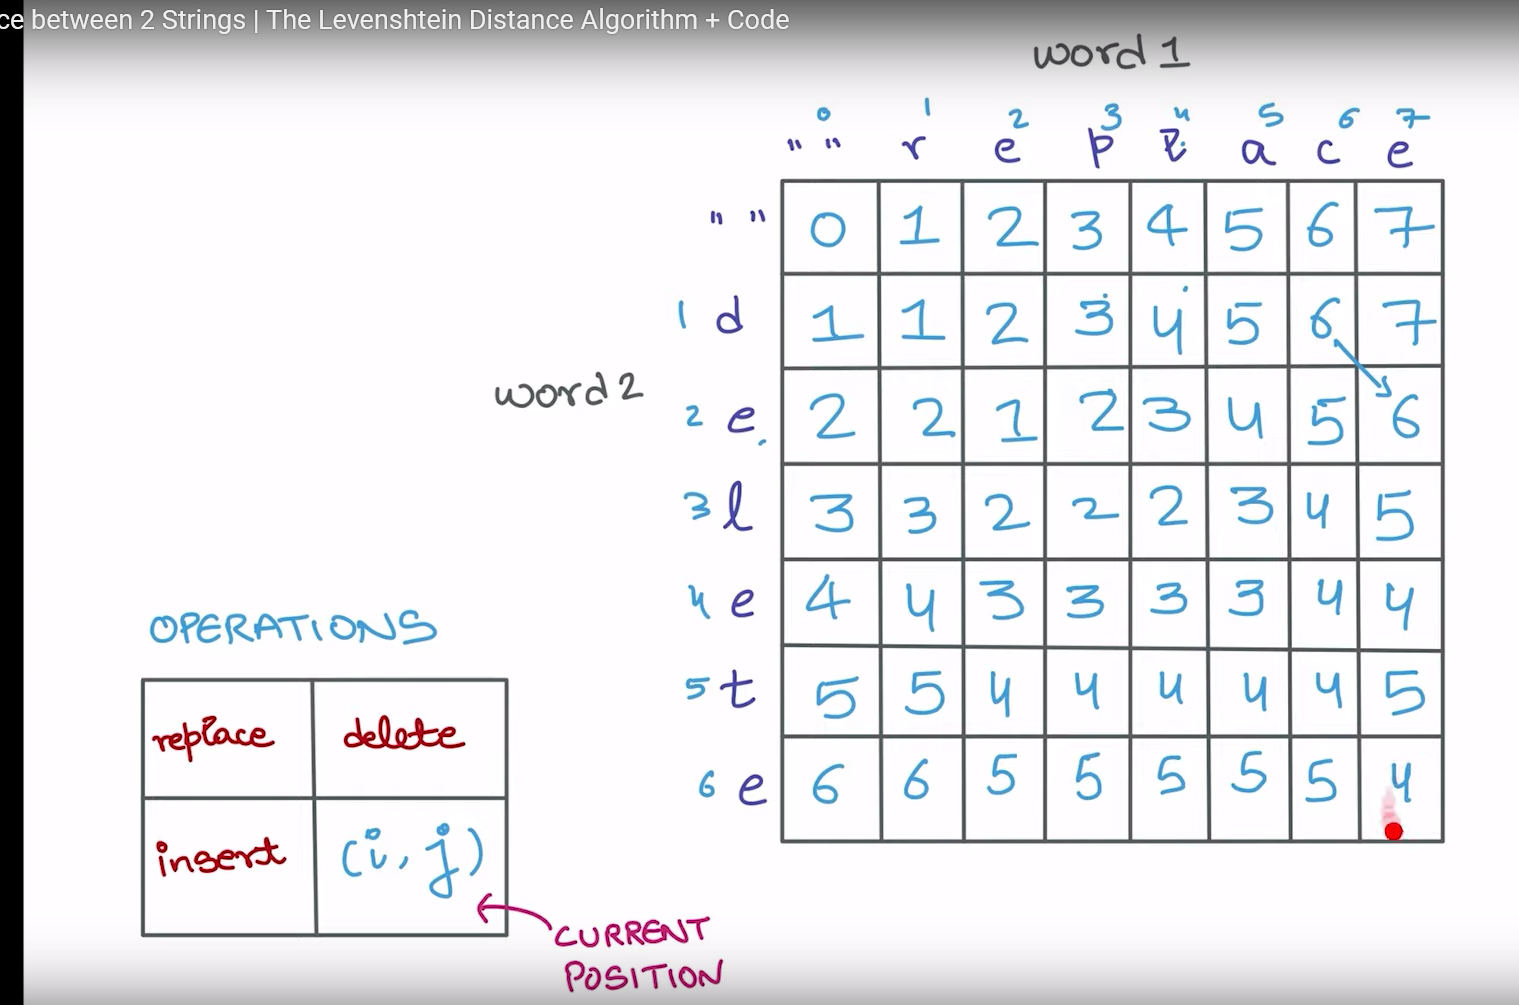 ce between 2 Strings | The Levenshtein Distance Algorithm + Code
word 1
0 1 2 3 4 5 6 7
" " r e p l a c e
" " 0 1 2 3 4 5 6 7
1 d 1 1 2 3 4 5 6 7
word 2
2 e 2 2 1 2 3 4 5 6
3 l 3 3 2 2 2 3 4 5
4 e 4 4 3 3 3 3 4 4
5 t 5 5 4 4 4 4 4 5
6 e 6 6 5 5 5 5 5 4
OPERATIONS
replace delete
insert (i, j)
CURRENT
POSITION